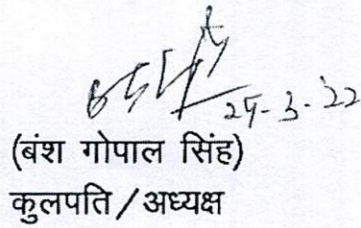 25-3-22
(बंश गोपाल सिंह)
कुलपति/अध्यक्ष